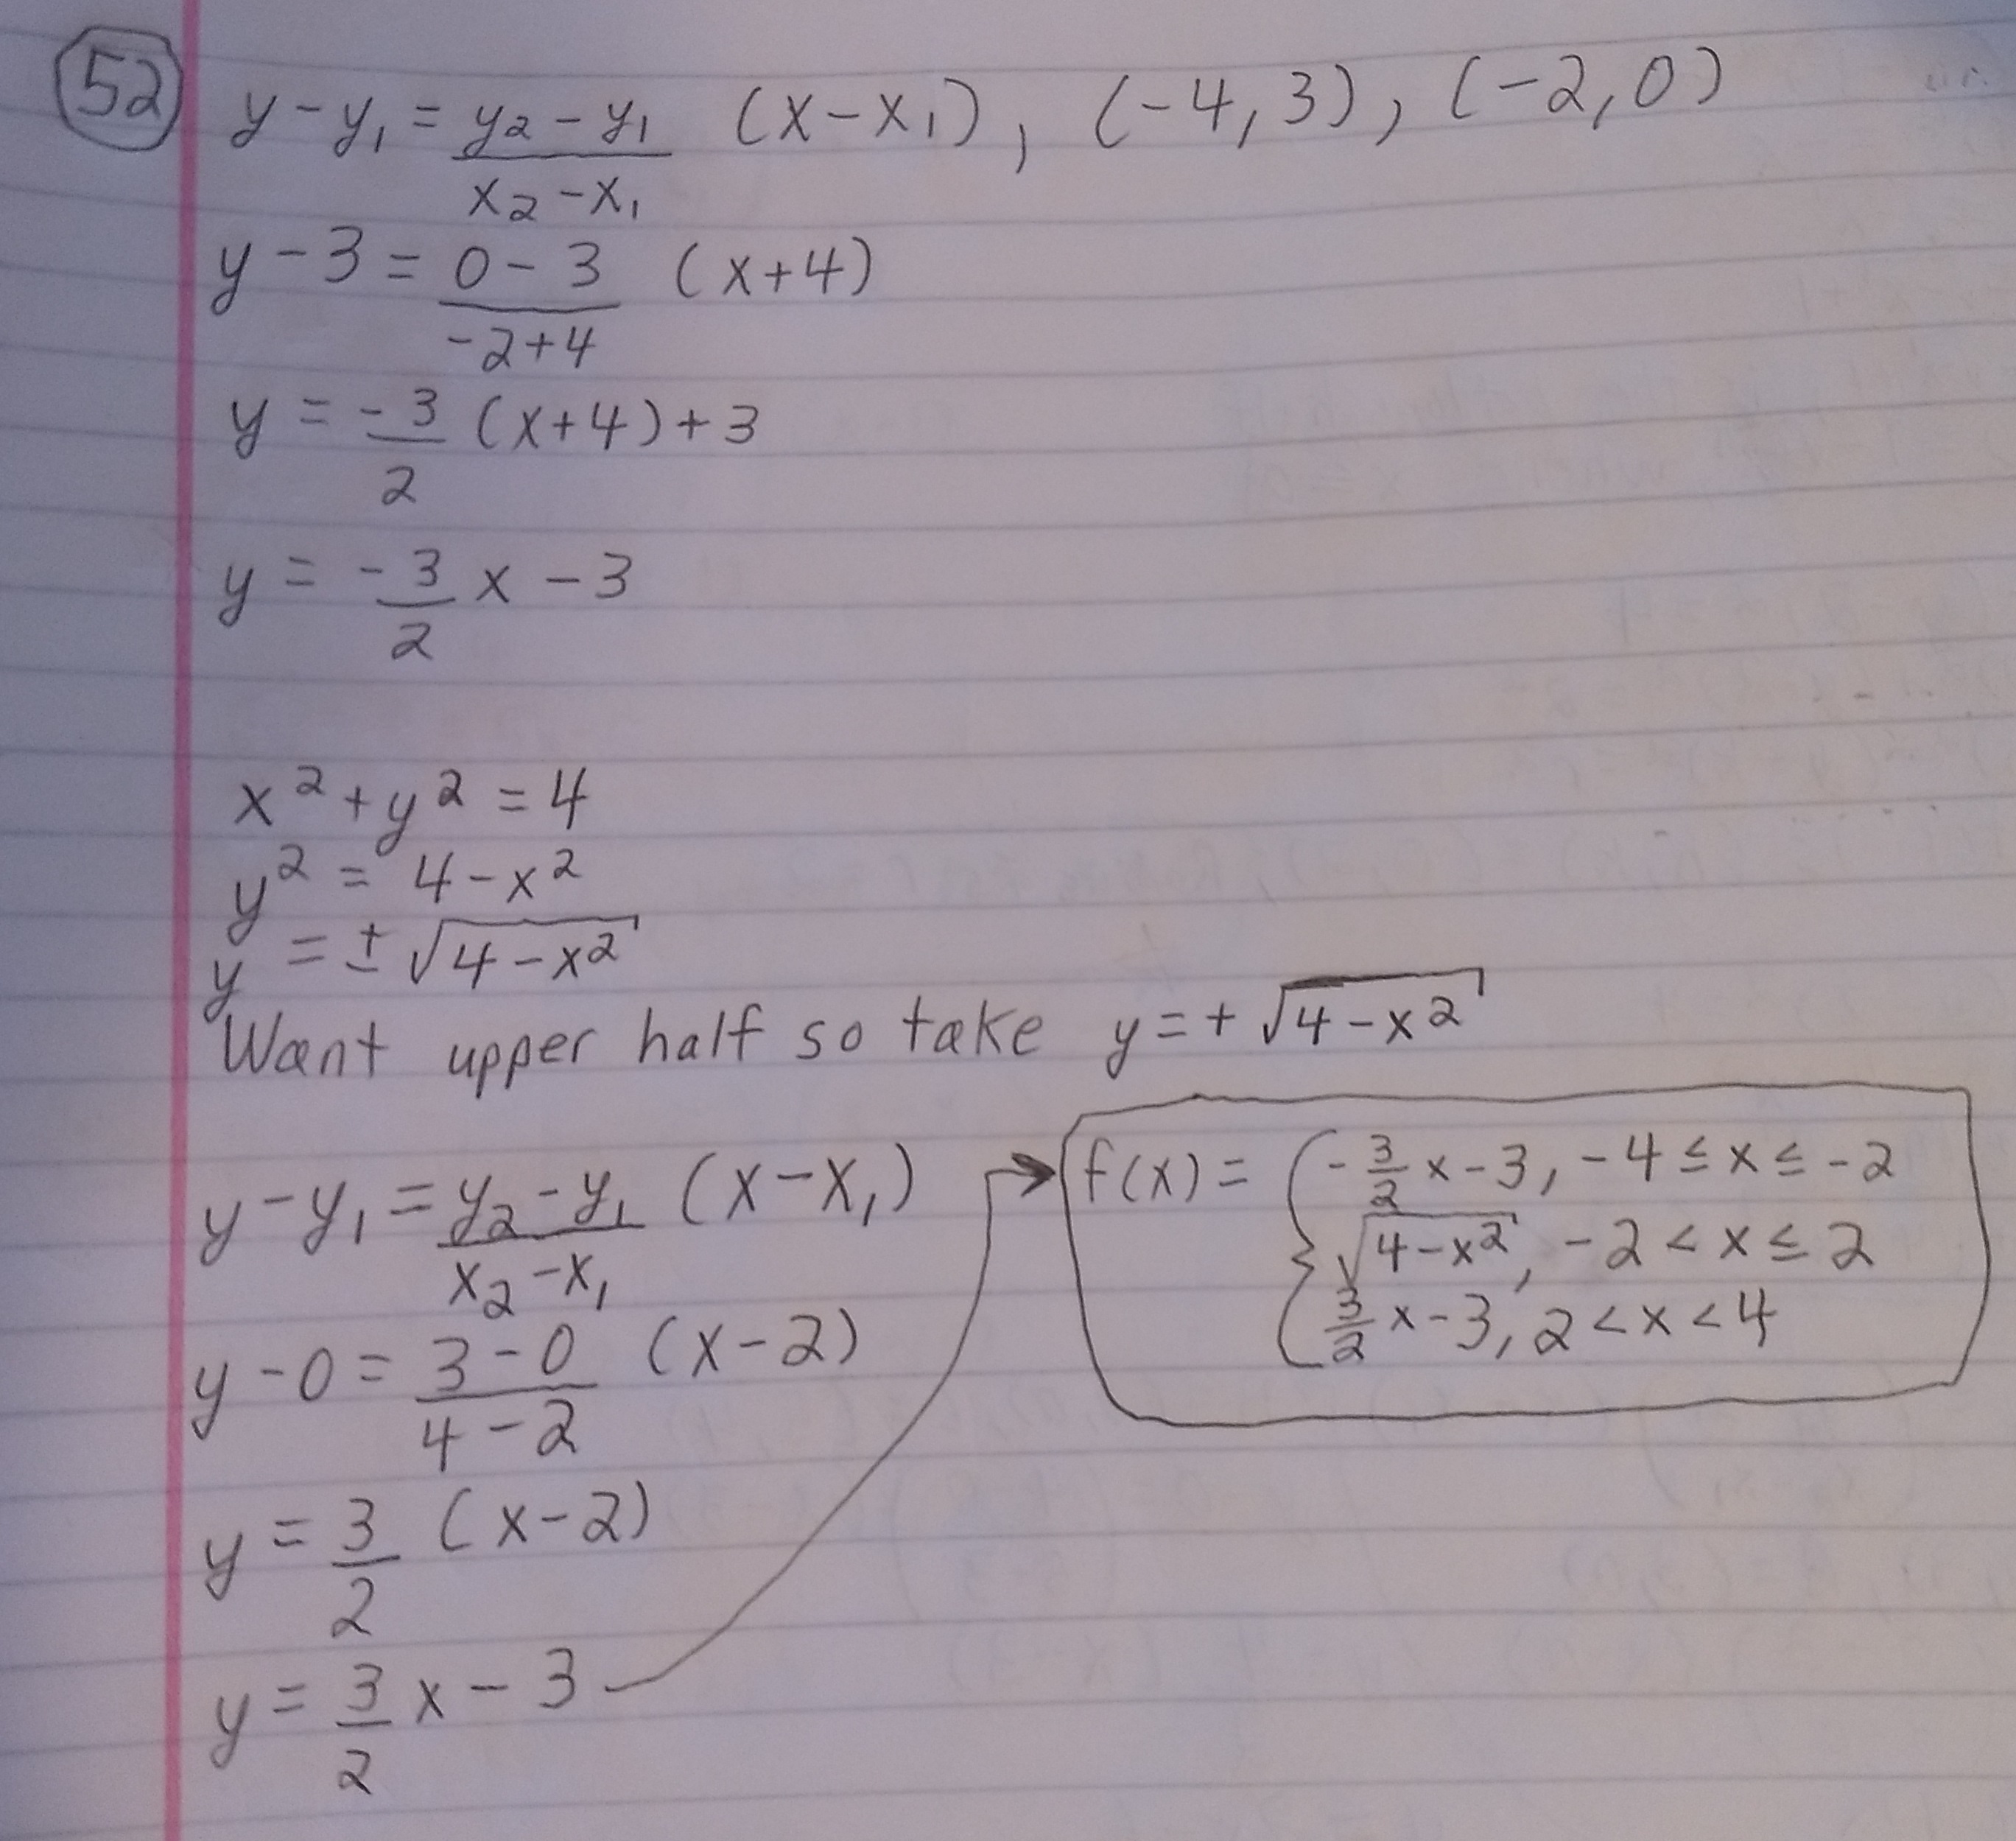 52
y - y₁ = (y₂ - y₁)/(x₂ - x₁) (x - x₁), (-4, 3), (-2, 0)
y - 3 = (0 - 3)/(-2+4) (x+4)
y = -3/2 (x+4) + 3
y = -3/2 x - 3
x² + y² = 4
y² = 4 - x²
y = ± √(4 - x²)
Want upper half so take y = + √(4 - x²)
y - y₁ = (y₂ - y₁)/(x₂ - x₁) (x - x₁)
y - 0 = (3 - 0)/(4 - 2) (x - 2)
y = 3/2 (x - 2)
y = 3/2 x - 3
f(x) = { -3/2 x - 3, -4 ≤ x ≤ -2
√(4 - x²), -2 < x ≤ 2
3/2 x - 3, 2 < x < 4